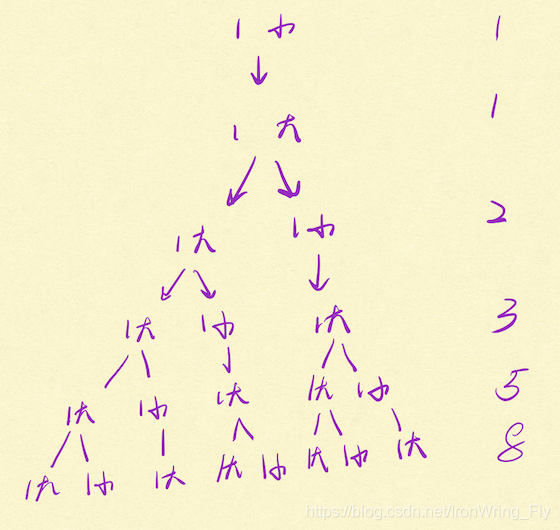 1 小 1
1 大 1
1大 1小 2
1大 1小 1大 3
1大 1小 1大 1大 1小 5
1大 1小 1大 1大 1小 1大 1小 1大 8
https://blog.csdn.net/IronWring_Fly